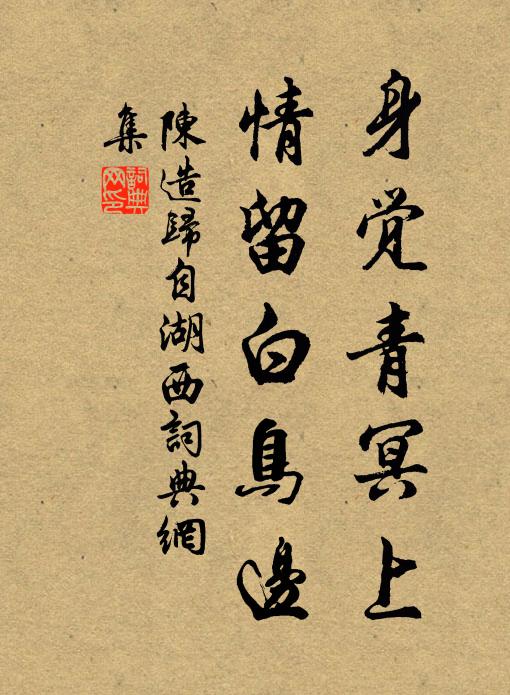 身觉青冥上
情留白鳥邊
陳造歸自湖西詞典網
集
詞典
网印